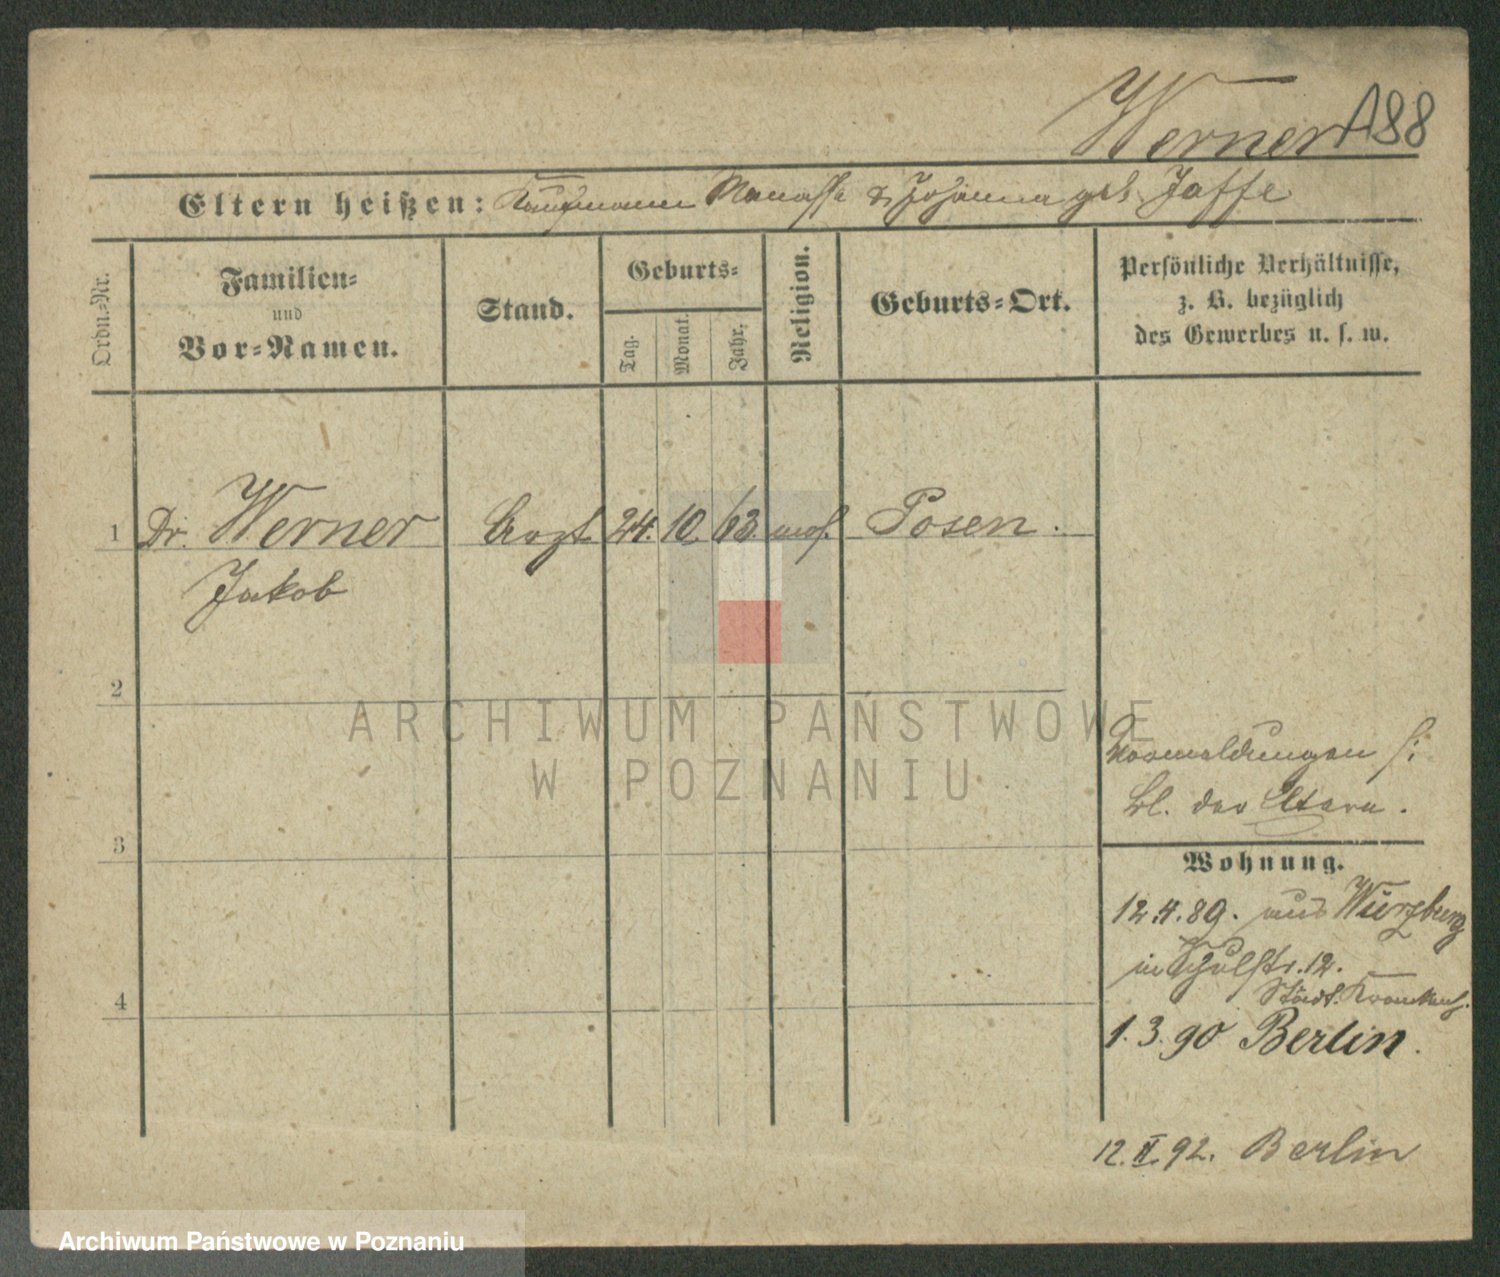 Werner A88
Eltern heißen: Kaufmann Manasse & Johanna geb. Jaffe
Ordn.-Nr.
Familien-
und
Vor-Namen.
Stand.
Geburts-
Tag.
Monat.
Jahr.
Religion.
Geburts-Ort.
Persönliche Verhältnisse,
z. B. bezüglich
des Gewerbes u. s. w.
1 Dr. Werner Arzt 24. 10. 63. mos. Posen.
Jakob
2
ARCHIWUM PAŃSTWOWE
W POZNANIU
Vormeldungen s:
Bl. der Eltern.
3
Wohnung.
12.4.89. aus Würzburg
in Schulstr. 12.
Städt. Krankenh.
4
1.3.90 Berlin.
12.II.92. Berlin
Archiwum Państwowe w Poznaniu